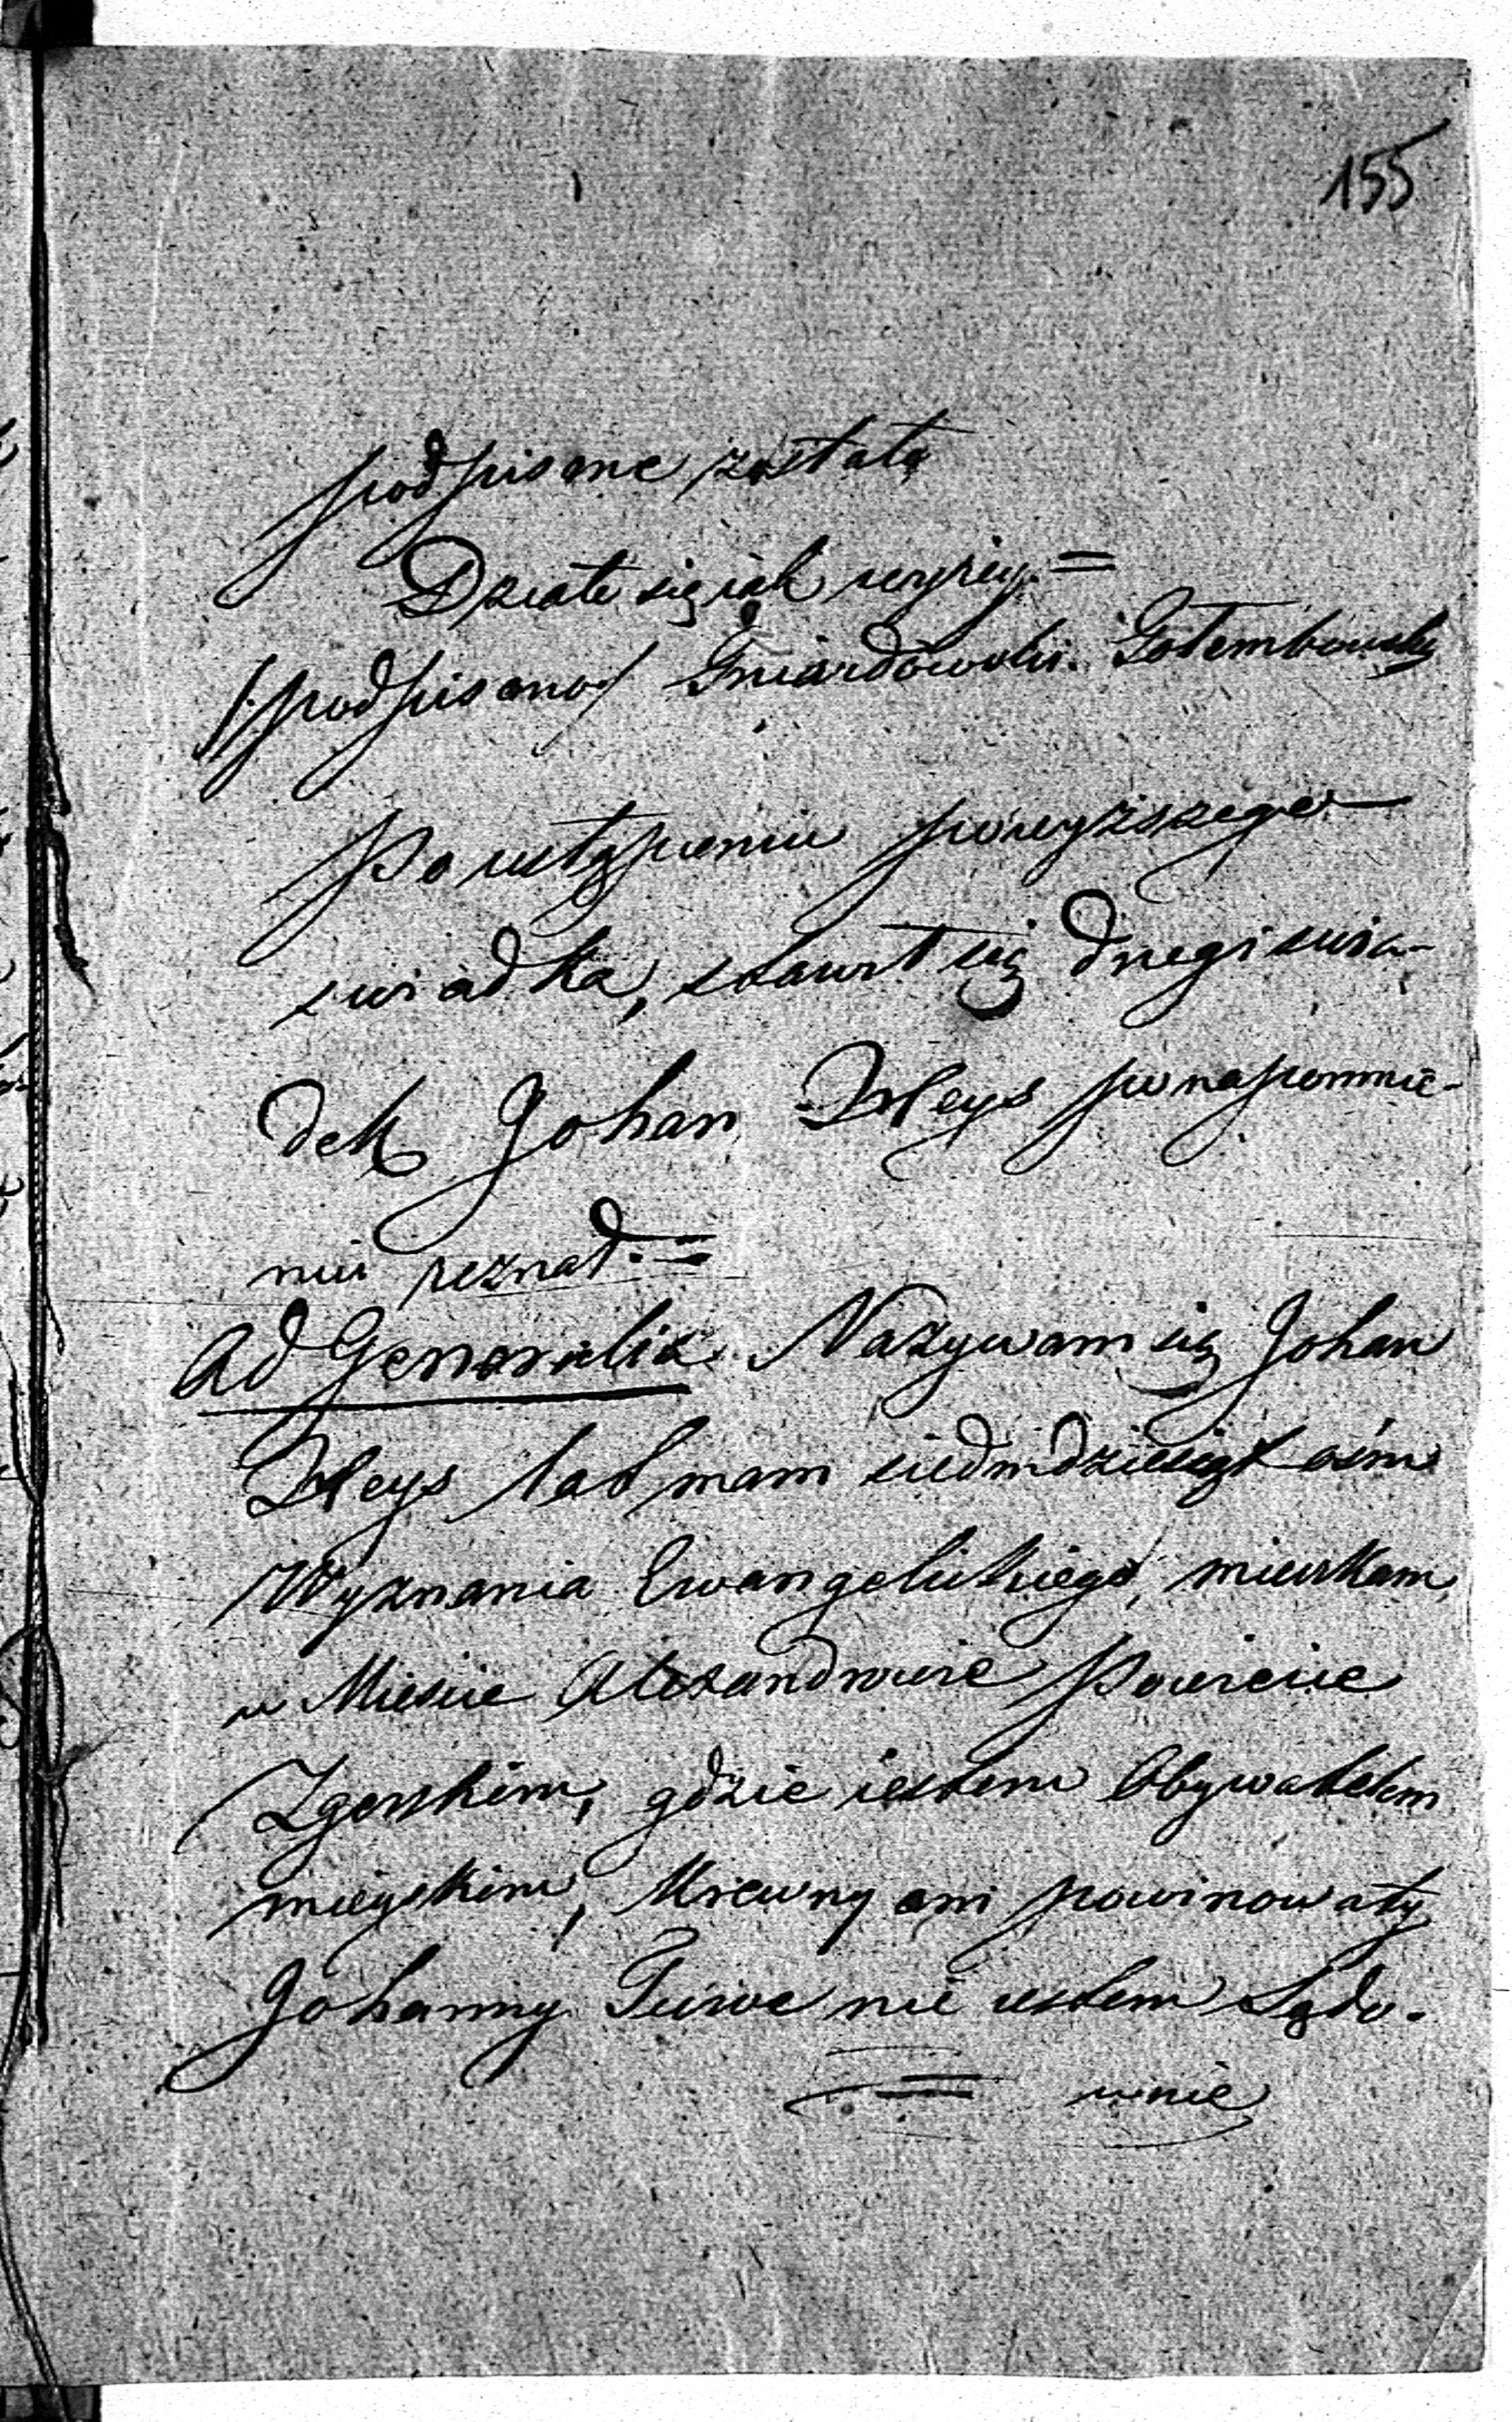 155
podpisane zostało
Działo się iak wyżey. =
/:podpisano:/ Gniazdowski. Gołembowski
Po ustąpieniu powyższego
swiadka, stawił się drugi swia-
dek Johan Weys po napomnie-
niu zeznał. =
Ad Generalia. Nazywam się Johan
Weys lat mam siedmdziesiąt ośm
Wyznania Ewangelickiego, mieszkam
w Mieście Alexandrowie Powiecie
Zgerskim, gdzie iestem Obywatelem
mieyskim, Krewny ani powinowaty
Johanny nie iestem Sądo-
wnie